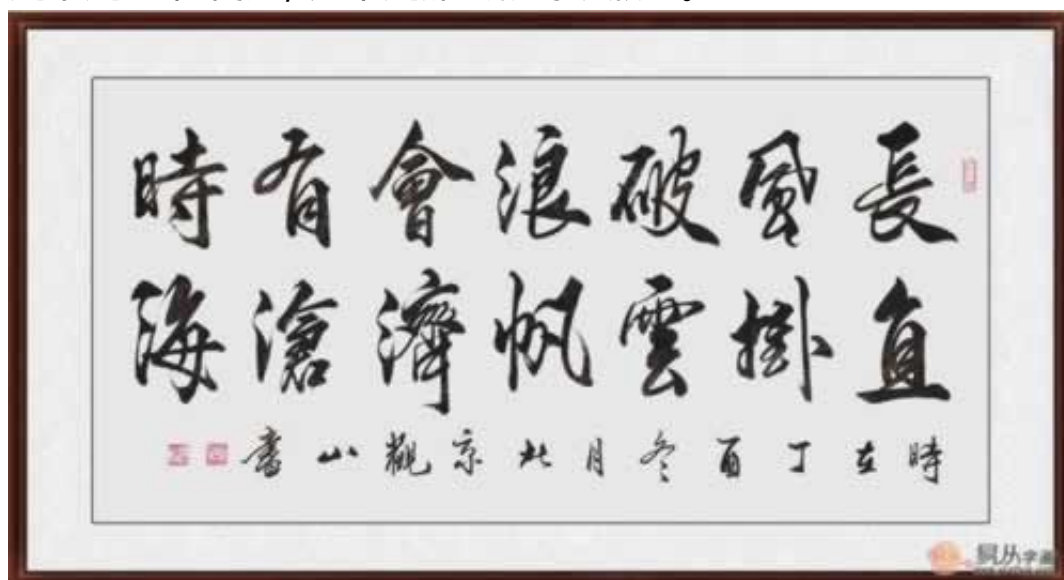 長風破浪會有時
直掛雲帆濟滄海
時在丁酉冬月北京觀山書
易从字画